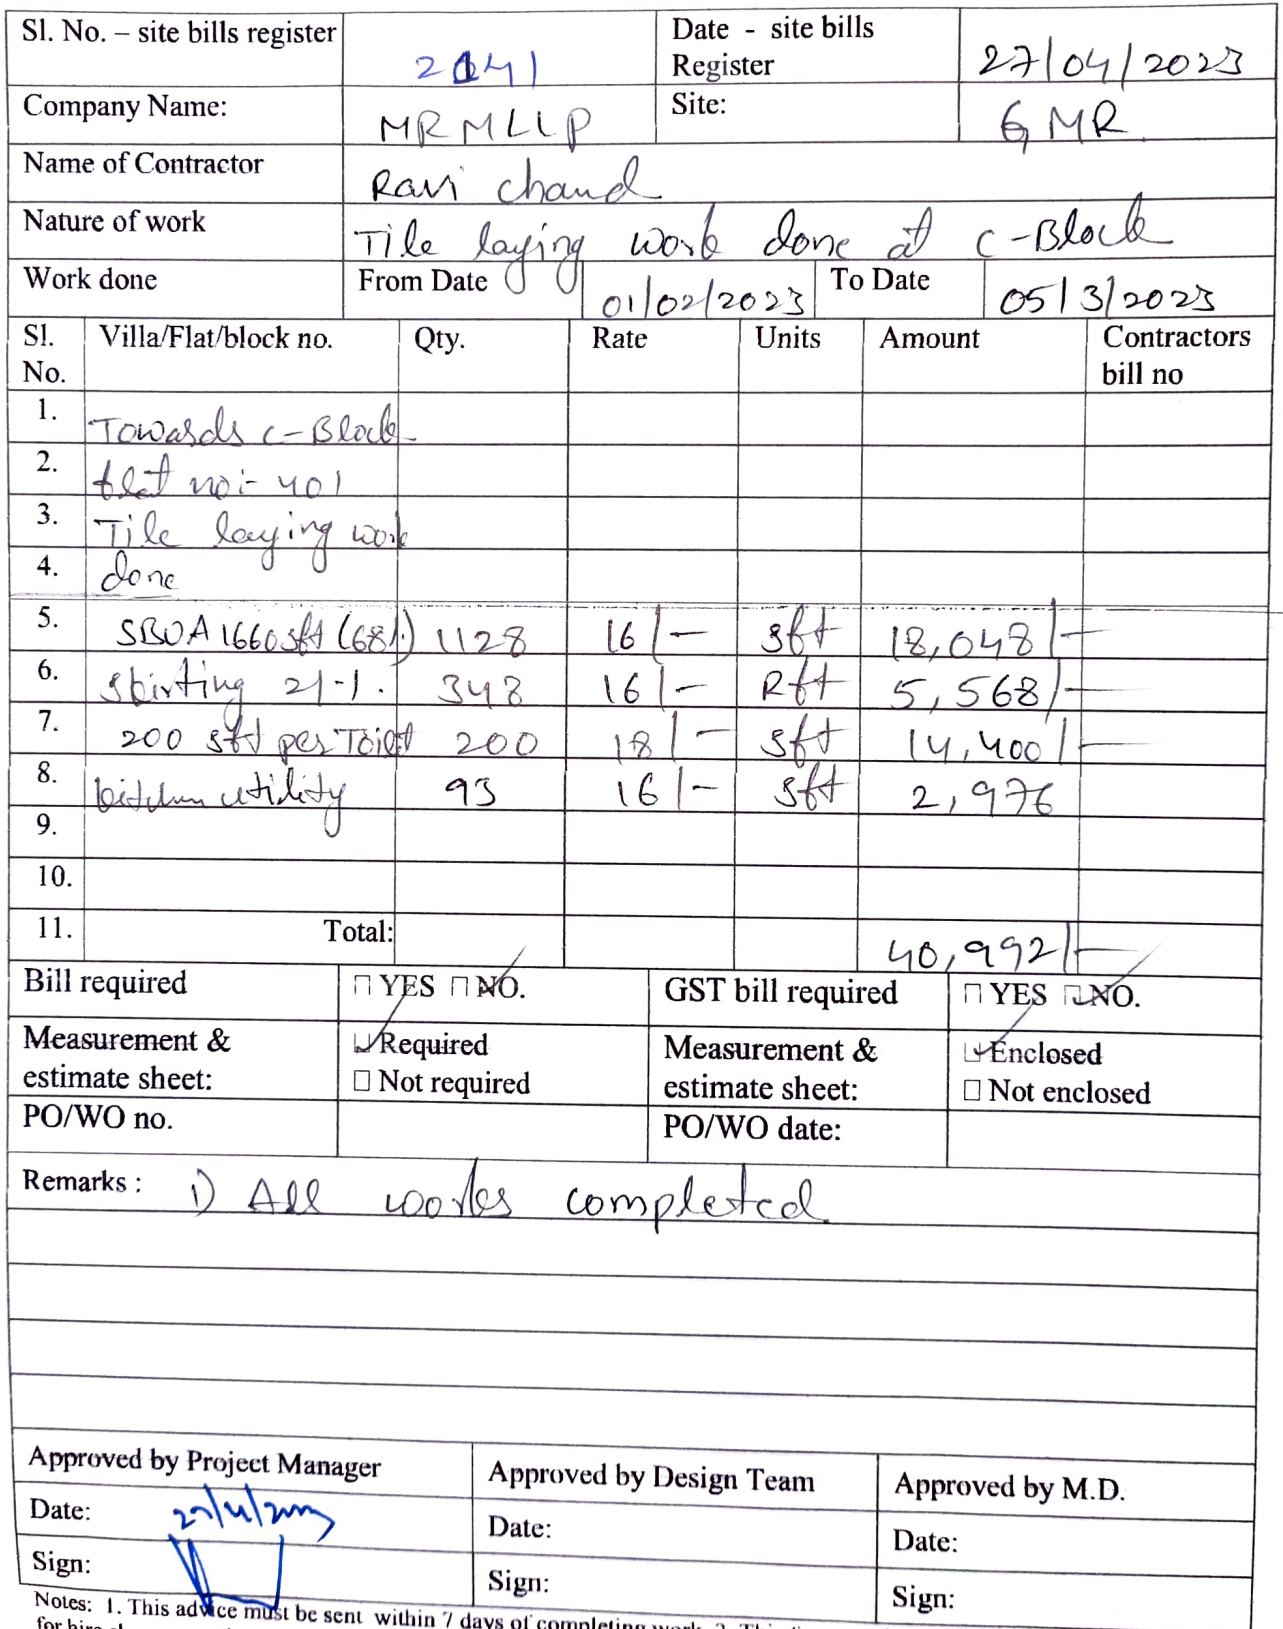 Sl. No. – site bills register 2141 Date - site bills Register 27/04/2023
Company Name: MRMLLP Site: GMR
Name of Contractor Ravi chand
Nature of work Tile laying work done at C-Block
Work done From Date 01/02/2023 To Date 05/3/2023
Sl. No. Villa/Flat/block no. Qty. Rate Units Amount Contractors bill no
1. Towards C-Block
2. flat no:- 401
3. Tile laying work
4. done
5. SBUA 1660sft (68%) 1128 16/- sft 18,048/-
6. skirting 21-1. 348 16/- Rft 5,568/-
7. 200 sft per Toilet 200 18/- sft 14,400/-
8. kitchen utility 93 16/- sft 2,976
9.
10.
11. Total: 40,992/-
Bill required YES NO. GST bill required YES NO.
Measurement & estimate sheet: Required Not required Measurement & estimate sheet: Enclosed Not enclosed
PO/WO no. PO/WO date:
Remarks : 1) All works completed
Approved by Project Manager Approved by Design Team Approved by M.D.
Date: Date: Date:
Sign: Sign: Sign:
Notes: 1. This advice must be sent within 7 days of completing work.